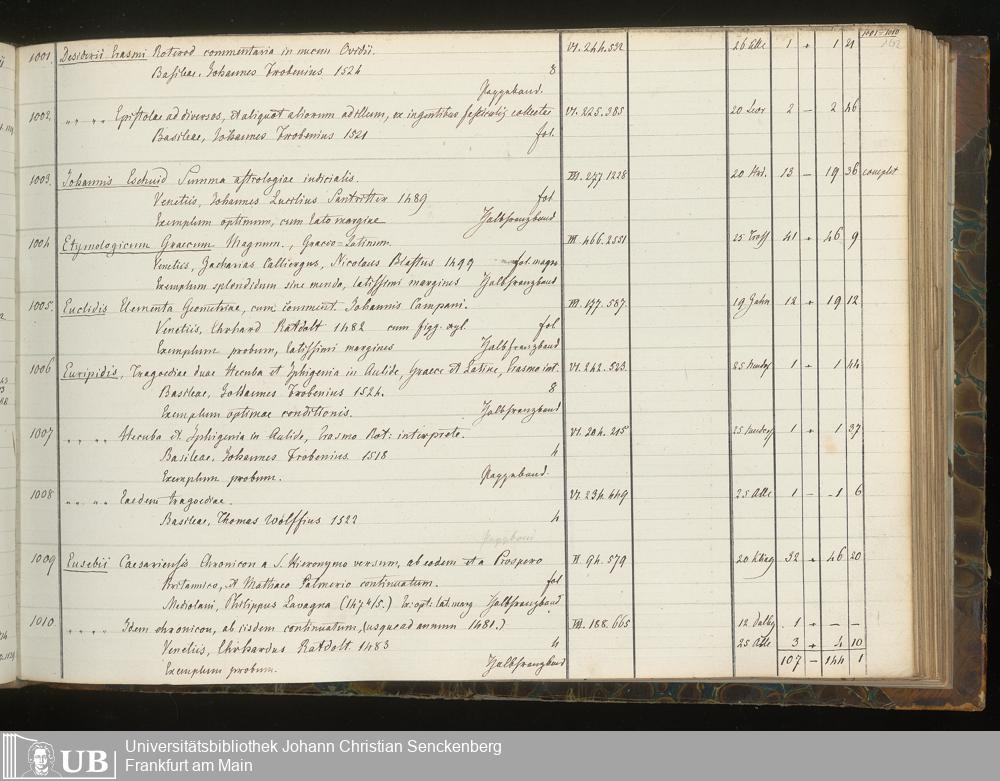 1001–1010
1001. Desiderii Erasmi Roterod commentaria in nucem Ovidii. VI. 244.532 26 1 + 1 21
Basileae, Johannes Frobenius 1524 8
Pappeband.
1002. „ „ „ „ Epistolae ad diversos, et aliquot aliorum ad illum, ex ingentibus fasciculis collectae VI. 225.385 20 Leor 2 – 2 46
Basileae, Johannes Frobenius 1521 fol.
1003. Johannis Eschuid Summa astrologiae iudicialis. III. 277 1228 20 13 – 19 36 complet
Venetiis, Johannes Lucilius Santritter 1489 fol
Exemplum optimum, cum lato margine Halbfranzband
1004 Etymologicum Graecum Magnum., Graeco-Latinum. III. 466.2551 25 Tross 41 + 46 9
Venetiis, Zacharias Calliergus, Nicolaus Blastus 1499 fol. magno
Exemplum splendidum sine menda, latissimi margines Halbfranzband
1005. Euclidis Elementa Geometriae, cum comment. Johannis Campani. III. 177. 587. 19 Jahn 12 + 19 12
Venetiis, Erhard Ratdolt 1482 cum figg. xyl. fol
Exemplum probum, latissimi margines Halbfranzband
1006 Euripidis, Tragoediae duae Hecuba et Iphigenia in Aulide, Graece et Latine, Erasmo int. VI. 242. 523. 25 1 + 1 44
Basileae, Johannes Frobenius 1524. 8
Exemplum optimae conditionis. Halbfranzband
1007 „ „ „ „ Hecuba et Iphigenia in Aulide, Erasmo Rot: interprete. VI. 204. 215 25 1 + 1 37
Basileae, Johannes Frobenius 1518 4
Exemplum probum. Pappeband.
1008 „ „ „ „ Eaedem tragoediae. VI. 234. 449 25 1 – 1 6
Basileae, Thomas Wolffius 1522 4
Pappband
1009 Eusebii Caesariensis Chronicon a S. Hieronymo versum, ab eodem et a Prospero VI. 94. 579 20 32 + 46 20
Britannico, et Mathaeo Palmerio continuatum. fol
Mediolani, Philippus Lavagna (1474/5.) Ex: opt: lat. marg Halbfranzband
1010 „ „ „ „ Idem chronicon, ab iisdem continuatum, (usque ad annum 1481.) III. 188. 665 12 1 + – –
Venetiis, Erhardus Ratdolt 1483 4 25 3 + 4 10
Exemplum probum. Halbfranzband 107 – 144 1
UB
Universitätsbibliothek Johann Christian Senckenberg
Frankfurt am Main